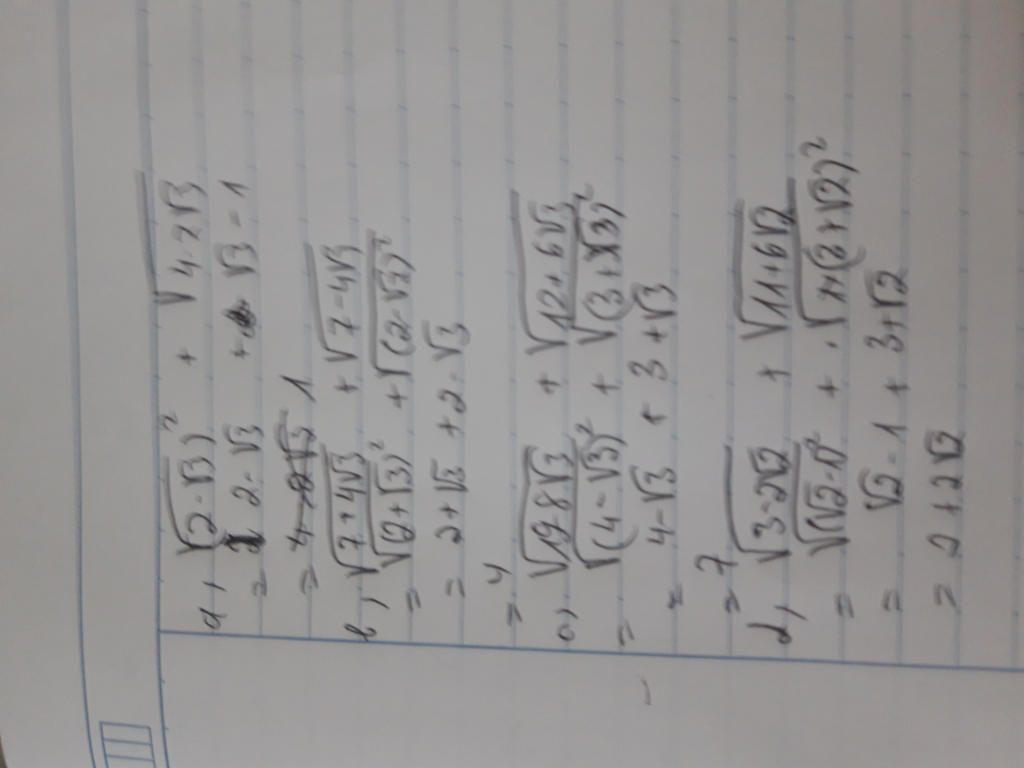 a, √(2-√3)² + √4-2√3
= 2-√3 + √3-1
= 1
b, √7+4√3 + √7-4√3
= √(2+√3)² + √(2-√3)²
= 2+√3 + 2-√3
= 4
c, √19-8√3 + √12+6√3
= √(4-√3)² + √(3+√3)²
= 4-√3 + 3+√3
= 7
d, √3-2√2 + √11+6√2
= √(√2-1)² + √(3+√2)²
= √2-1 + 3+√2
= 2+2√2